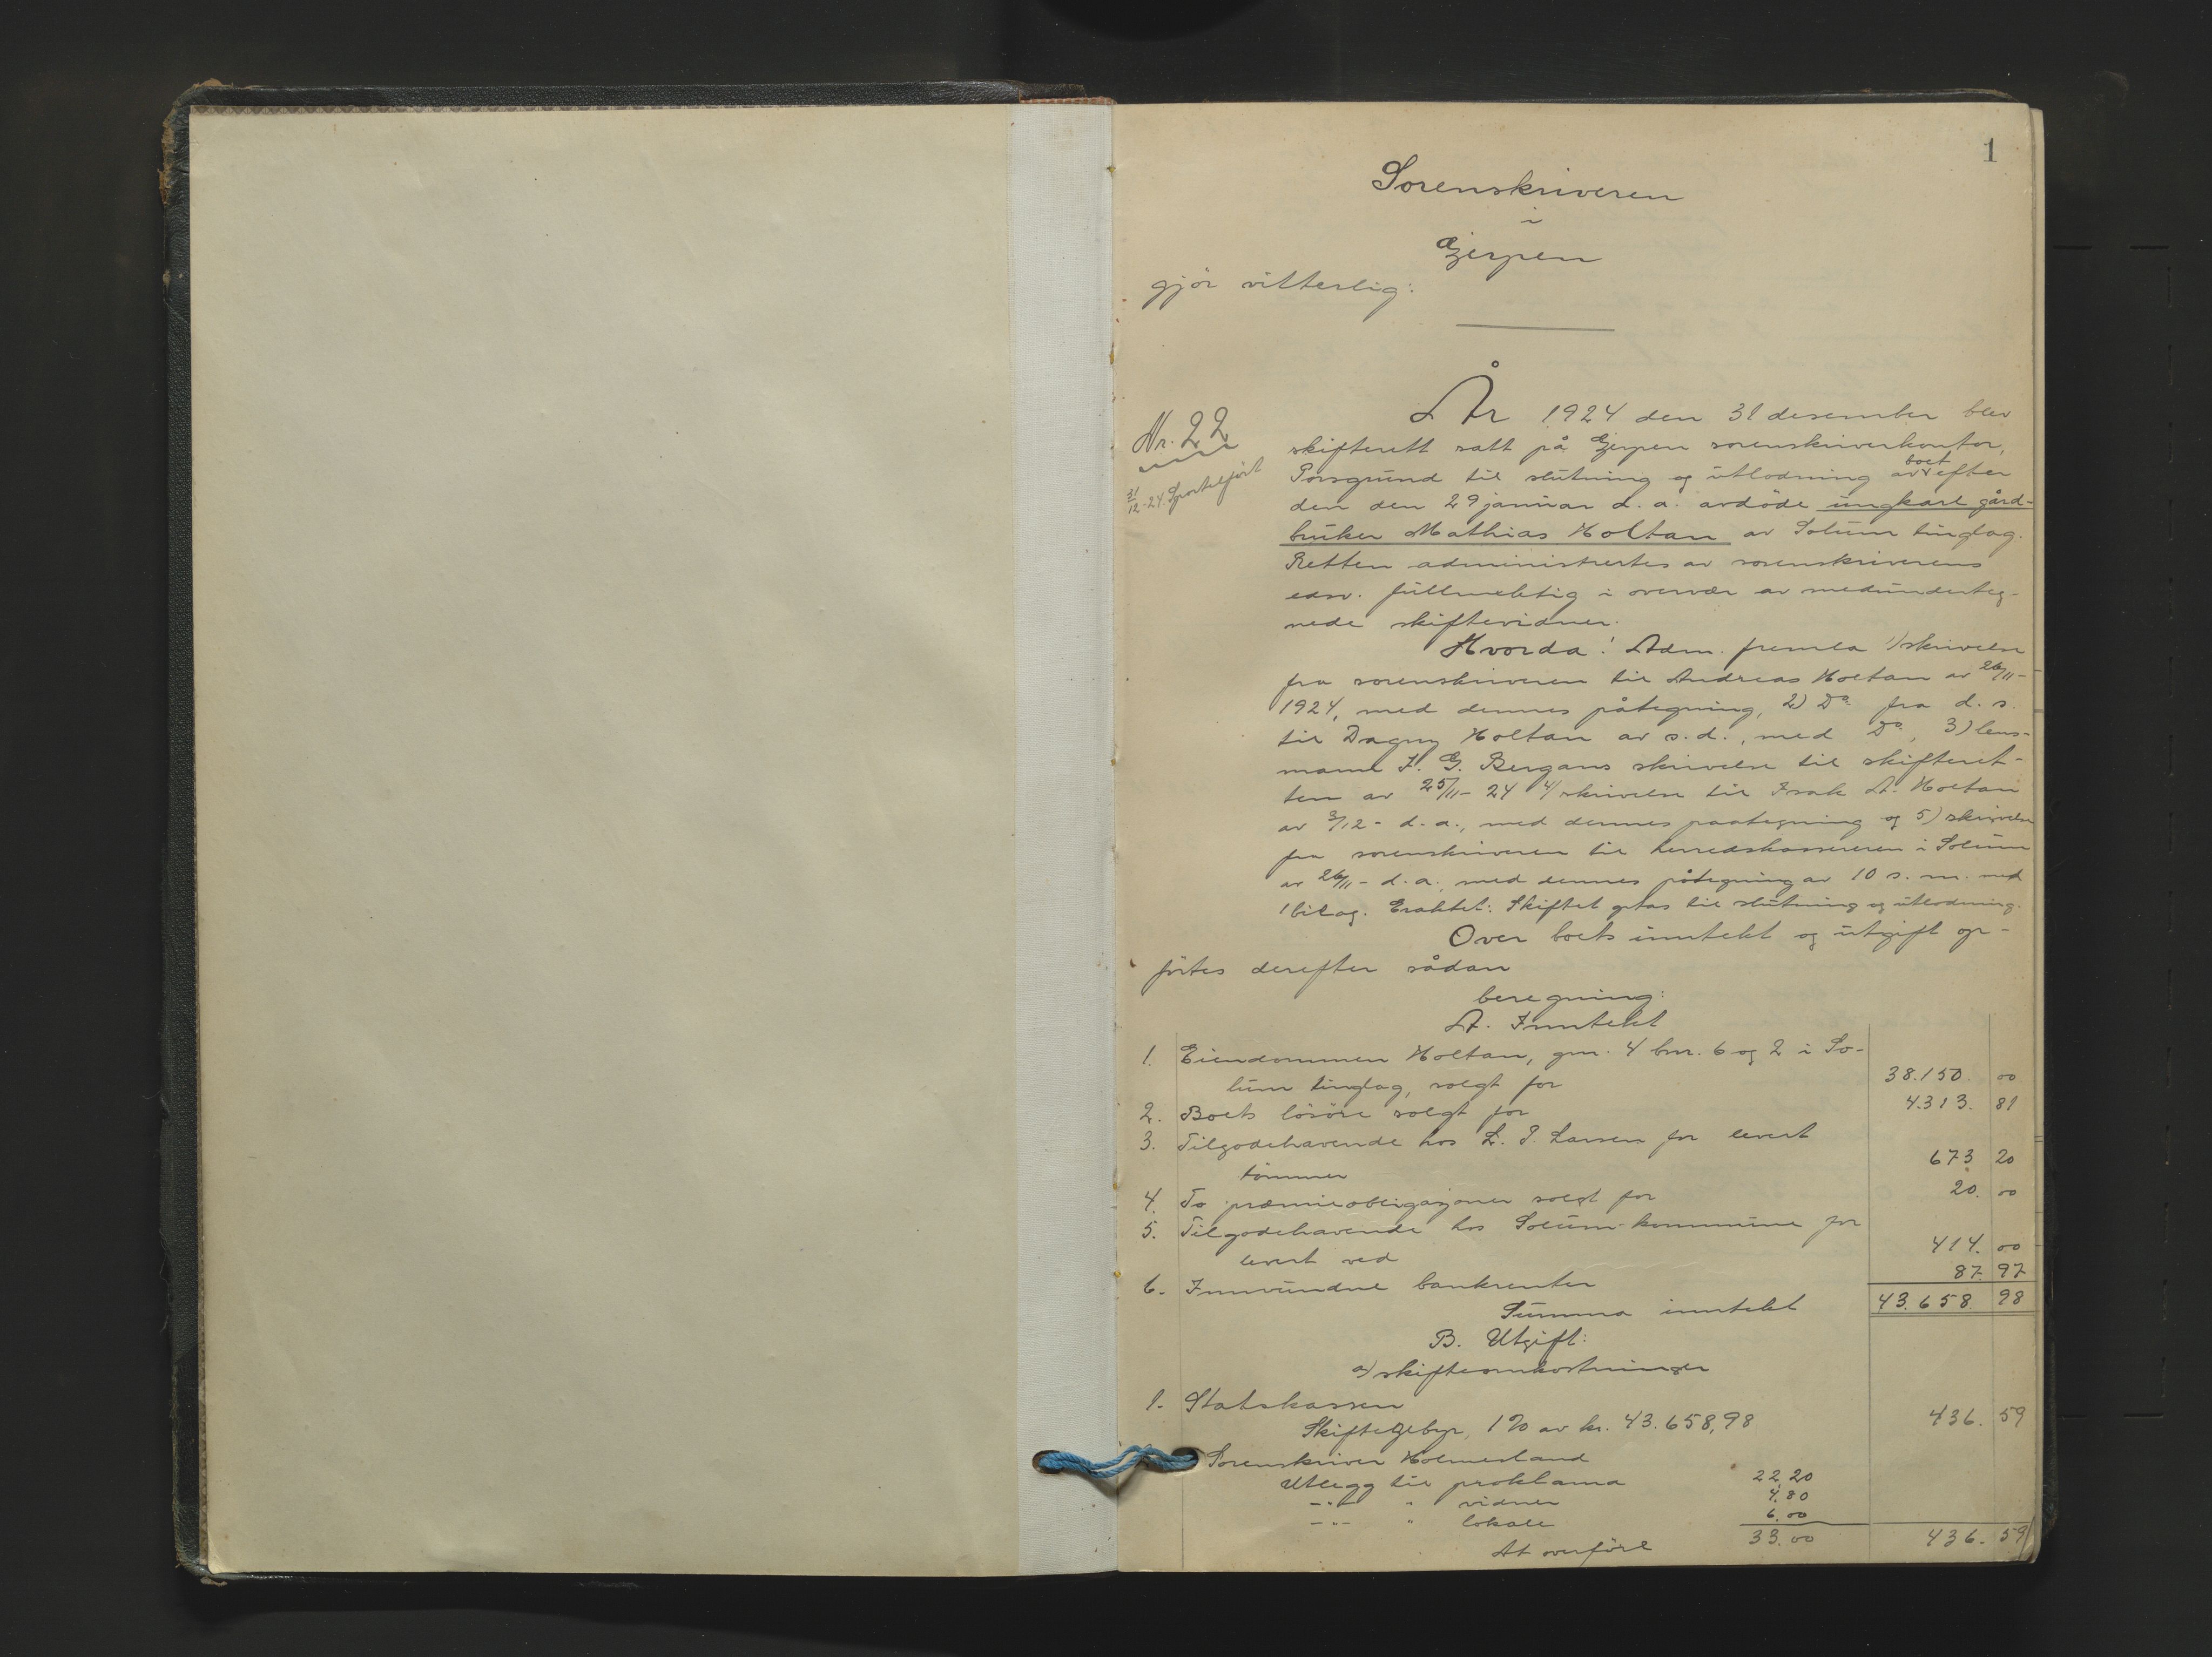 1
Sorenskriveren
i
Gjerpen
gjör vitterlig:
År 1924 den 31 desember blev
Nr. 22
skifterett satt på Gjerpen sorenskriverkontor,
31/12-24. Sportelført
Porsgrund til slutning og utlodning av boet efter
den den 29 januar d. a. avdöde ungkarl gård-
bruker Mathias Holtan av Solum tinglag.
Retten administrertes av sorenskriverens
edsv. fullmektig i overvær av medunderteg-
nede skiftevidner.
Hvorda: Adm. fremla 1) skrivelse
fra sorenskriveren til Andreas Holtan av 26/11-
1924, med dennes påtegning, 2) Do fra d. s.
til Dagny Holtan av s.d., med Do, 3) lens-
mann J. G. Bergans skrivelse til skifteret-
ten av 25/11-24 4) skrivelse til Isak A. Holtan
av 3/12- d. a., med dennes paategning og 5) skrivelse
fra sorenskriveren til herredskassereren i Solum
av 26/11- d. a. med dennes påtegning av 10 s. m. med
1 bilag. Eraktet: Skiftet optas til slutning og utlodning.
Over boets inntekt og utgift op-
förtes derefter sådan
beregning:
A. Inntekt
1. Eiendommen Holtan, gnr. 4 bnr. 6 og 2 i So-
lum tinglag, solgt for 38.150. 00
2. Boets lösöre solgt for 4.313. 81
3. Tilgodehavende hos L. P. Larsen for levert
tömmer 673 20
4. To præmieobligasjoner solgt for 20. 00
5. Tilgodehavende hos Solum kommune for
levert ved 414. 00
6. Innvundne bankrenter 87. 97
Summa inntekt 43.658. 98
B. Utgift:
a) skifteomkostninger
1. Statskassen
Skiftegebyr, 1% av kr. 43.658,98 436. 59
Sorenskriver Holmesland
Utlegg til proklama 22.20
-"- " vidner 4.80
-"- " lokale 6.00
At overföre 33.00 436. 59